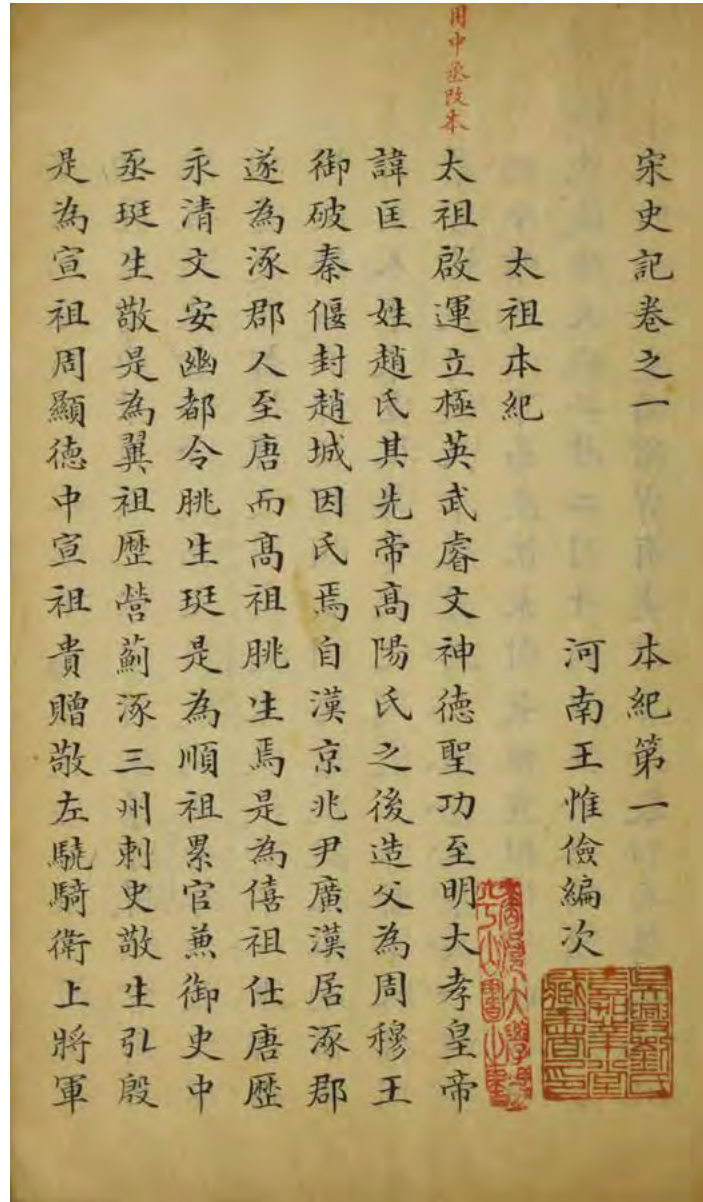 宋史記卷之一 本紀第一
河南王惟儉編次
太祖本紀
用中丞改本
太祖啟運立極英武睿文神德聖功至明大孝皇帝
諱匡 姓趙氏其先帝髙陽氏之後造父為周穆王
御破秦偃封趙城因氏焉自漢京兆尹廣漢居涿郡
遂為涿郡人至唐而髙祖朓生焉是為僖祖仕唐歷
永清文安幽都令朓生珽是為順祖累官兼御史中
丞珽生敬是為翼祖歷營薊涿三州刺史敬生引殷
是為宣祖周顯德中宣祖貴贈敬左驍騎衛上將軍
吳興劉氏
嘉業堂
藏書印
香港大學馮
平山圖書館